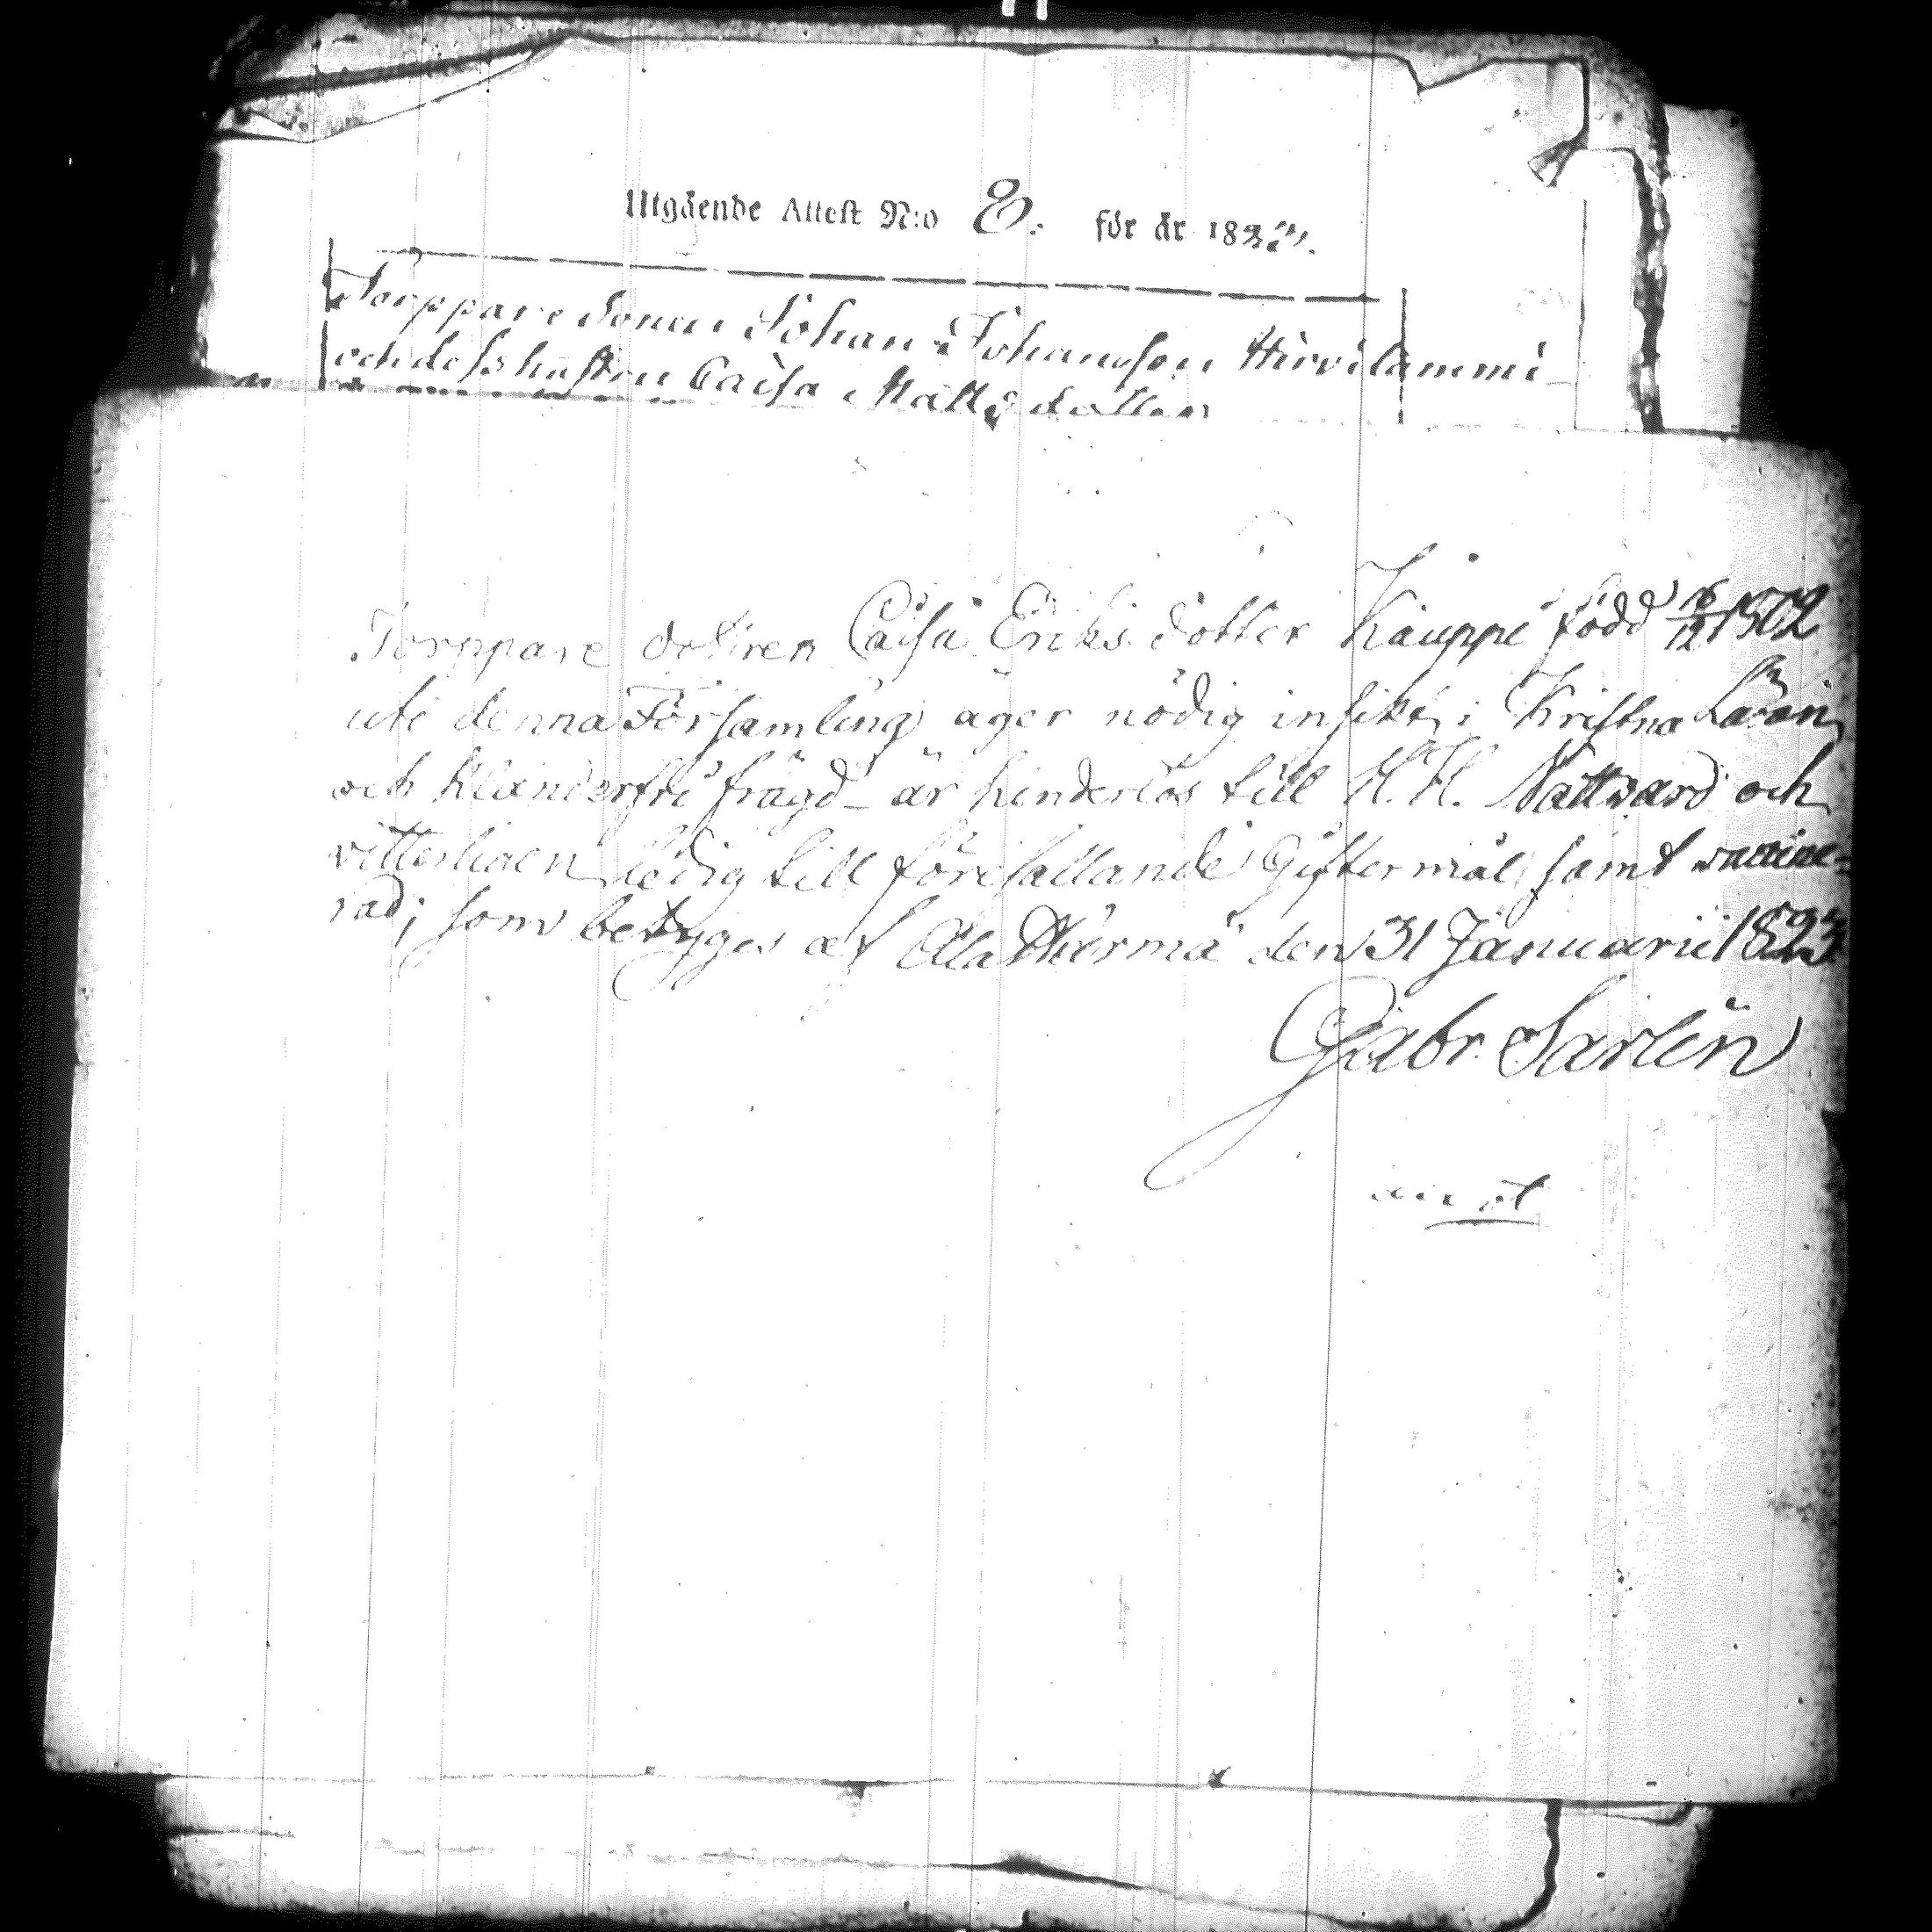 Utgående Attest N:o 8. för år 18
Torppare Sonen Johan Johansson Hirvilammi
och dess hustru Caisa Mattsdotter
Torppare dottren Caisa Eriks dotter Kauppi född 16/12 1802
uti denna Församling äger nödig insikt i Kristna Läran
och klanderfri frägd – är hinderlös till H. H. Nattward och
vitterligen ledig till förefallande Giftermål, samt vaccine-
rad; som betyges af Ala Härmä den 31 Januarii 1823
Gabr. Sarlin